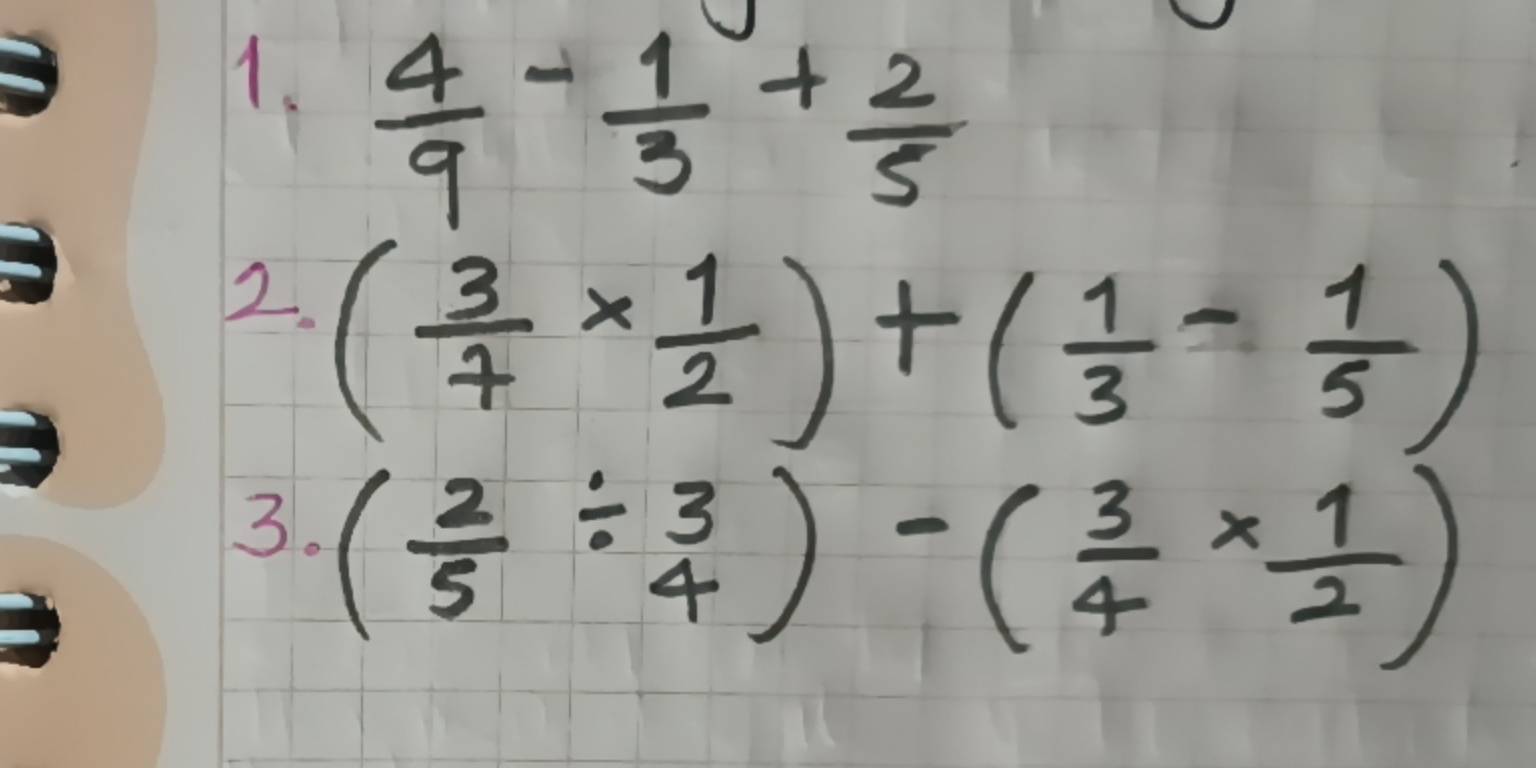 1. 4/9 - 1/3 + 2/5
2. (3/7 × 1/2) + (1/3 - 1/5)
3. (2/5 ÷ 3 4) - (3/4 × 1/2)